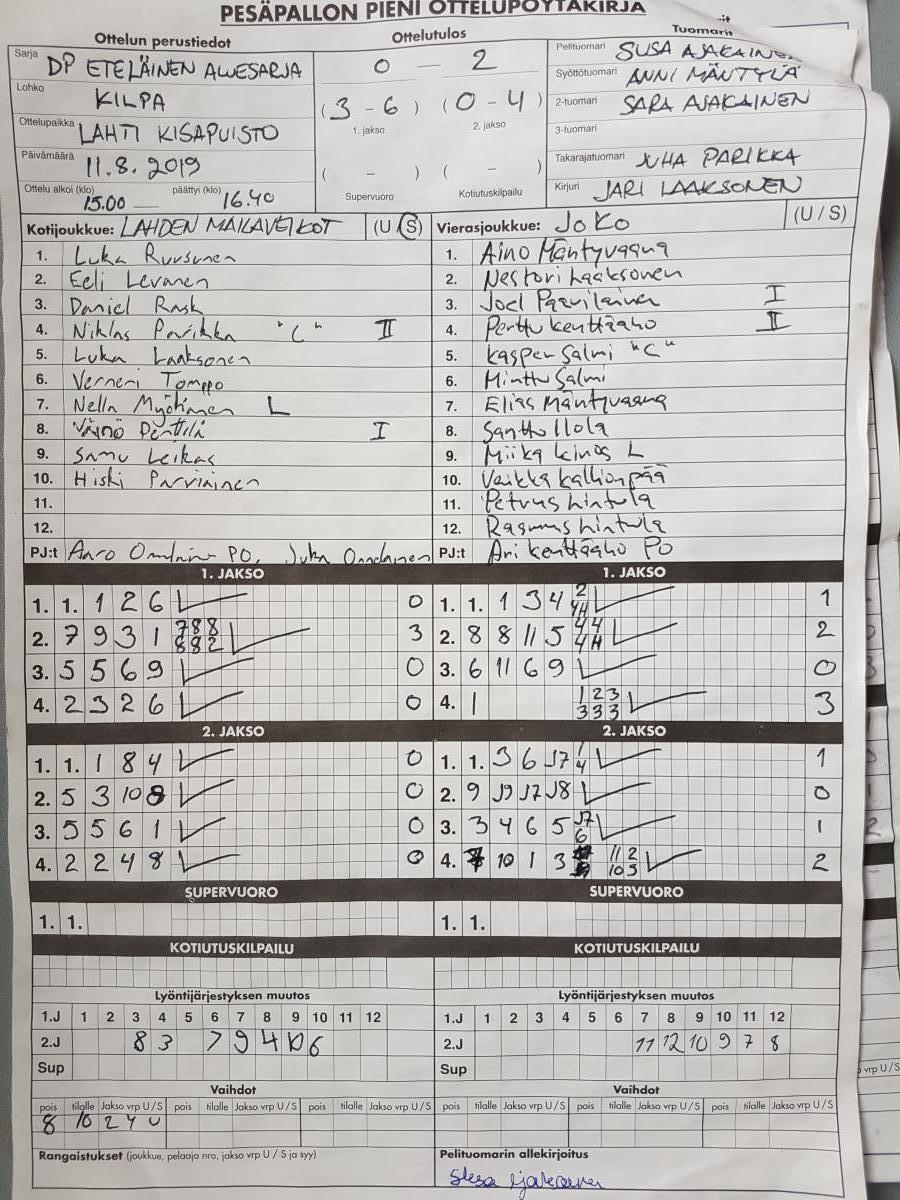 PESÄPALLON PIENI OTTELUPÖYTÄKIRJA
Ottelun perustiedot
Sarja DP ETELÄINEN ALUESARJA
Lohko KILPA
Ottelupaikka LAHTI KISAPUISTO
Päivämäärä 11.8.2019
Ottelu alkoi (klo) 15.00 päättyi (klo) 16.40
Ottelutulos
0 – 2
(3 - 6) (0 - 4)
1. jakso 2. jakso
( - ) ( - )
Supervuoro Kotiutuskilpailu
Tuomarit
Pelituomari SUSA AJAKAINEN
Syöttötuomari ANNI MÄNTYLÄ
2-tuomari SARA AJAKAINEN
3-tuomari
Takarajatuomari JUHA PARIKKA
Kirjuri JARI LAAKSONEN
Kotijoukkue: LAHDEN MAILAVEIKOT (U/S)
1. Luka Ruusunen
2. Eeli Levanen
3. Daniel Rask
4. Niklas Parikka "C" II
5. Luka Laaksonen
6. Verneri Tomppo
7. Nella Myöhänen L
8. Väinö Penttilä I
9. Samu Leikas
10. Hiski Parviainen
11.
12.
PJ:t Aaro PO, Juka
Vierasjoukkue: JoKo (U / S)
1. Aino Mäntyvaara
2. Nestori Laaksonen
3. Joel Paavilainen I
4. Perttu Kenttäaho II
5. Kasper Salmi "C"
6. Minttu Salmi
7. Elias Mäntyvaara
8. Santtu Ilola
9. Miika Kinos L
10. Veikka Kallionpää
11. Petrus Hintula
12. Rasmus Hintula
PJ:t Ari Kenttäaho PO
1. JAKSO
1. 1. 1 2 6 0
2. 7 9 3 1 788 882 3
3. 5 5 6 9 0
4. 2 3 2 6 0
1. JAKSO
1. 1. 1 3 4 2 4H 1
2. 8 8 11 5 44 4H 2
3. 6 11 6 9 0
4. 1 123 333 3
2. JAKSO
1. 1. 1 8 4 0
2. 5 3 10 8 0
3. 5 5 6 1 0
4. 2 2 4 8 0
2. JAKSO
1. 1. 3 6 J7 1 4 1
2. 9 J9 J7 J8 0
3. 3 4 6 5 J7 6 1
4. 10 1 3 11 2 10 5 2
SUPERVUORO
1. 1.
SUPERVUORO
1. 1.
KOTIUTUSKILPAILU
KOTIUTUSKILPAILU
Lyöntijärjestyksen muutos
1.J 1 2 3 4 5 6 7 8 9 10 11 12
2.J 8 3 7 9 4 10 6
Sup
Lyöntijärjestyksen muutos
1.J 1 2 3 4 5 6 7 8 9 10 11 12
2.J 11 12 10 9 7 8
Sup
Vaihdot
pois tilalle Jakso vrp U/S pois tilalle Jakso vrp U/S pois tilalle Jakso vrp U/S
8 10 2 4 U
Vaihdot
pois tilalle Jakso vrp U/S pois tilalle Jakso vrp U/S pois tilalle Jakso vrp U/S
Rangaistukset (joukkue, pelaaja nro, jakso vrp U / S ja syy)
Pelituomarin allekirjoitus
Susa Ajakainen
vrp U/S